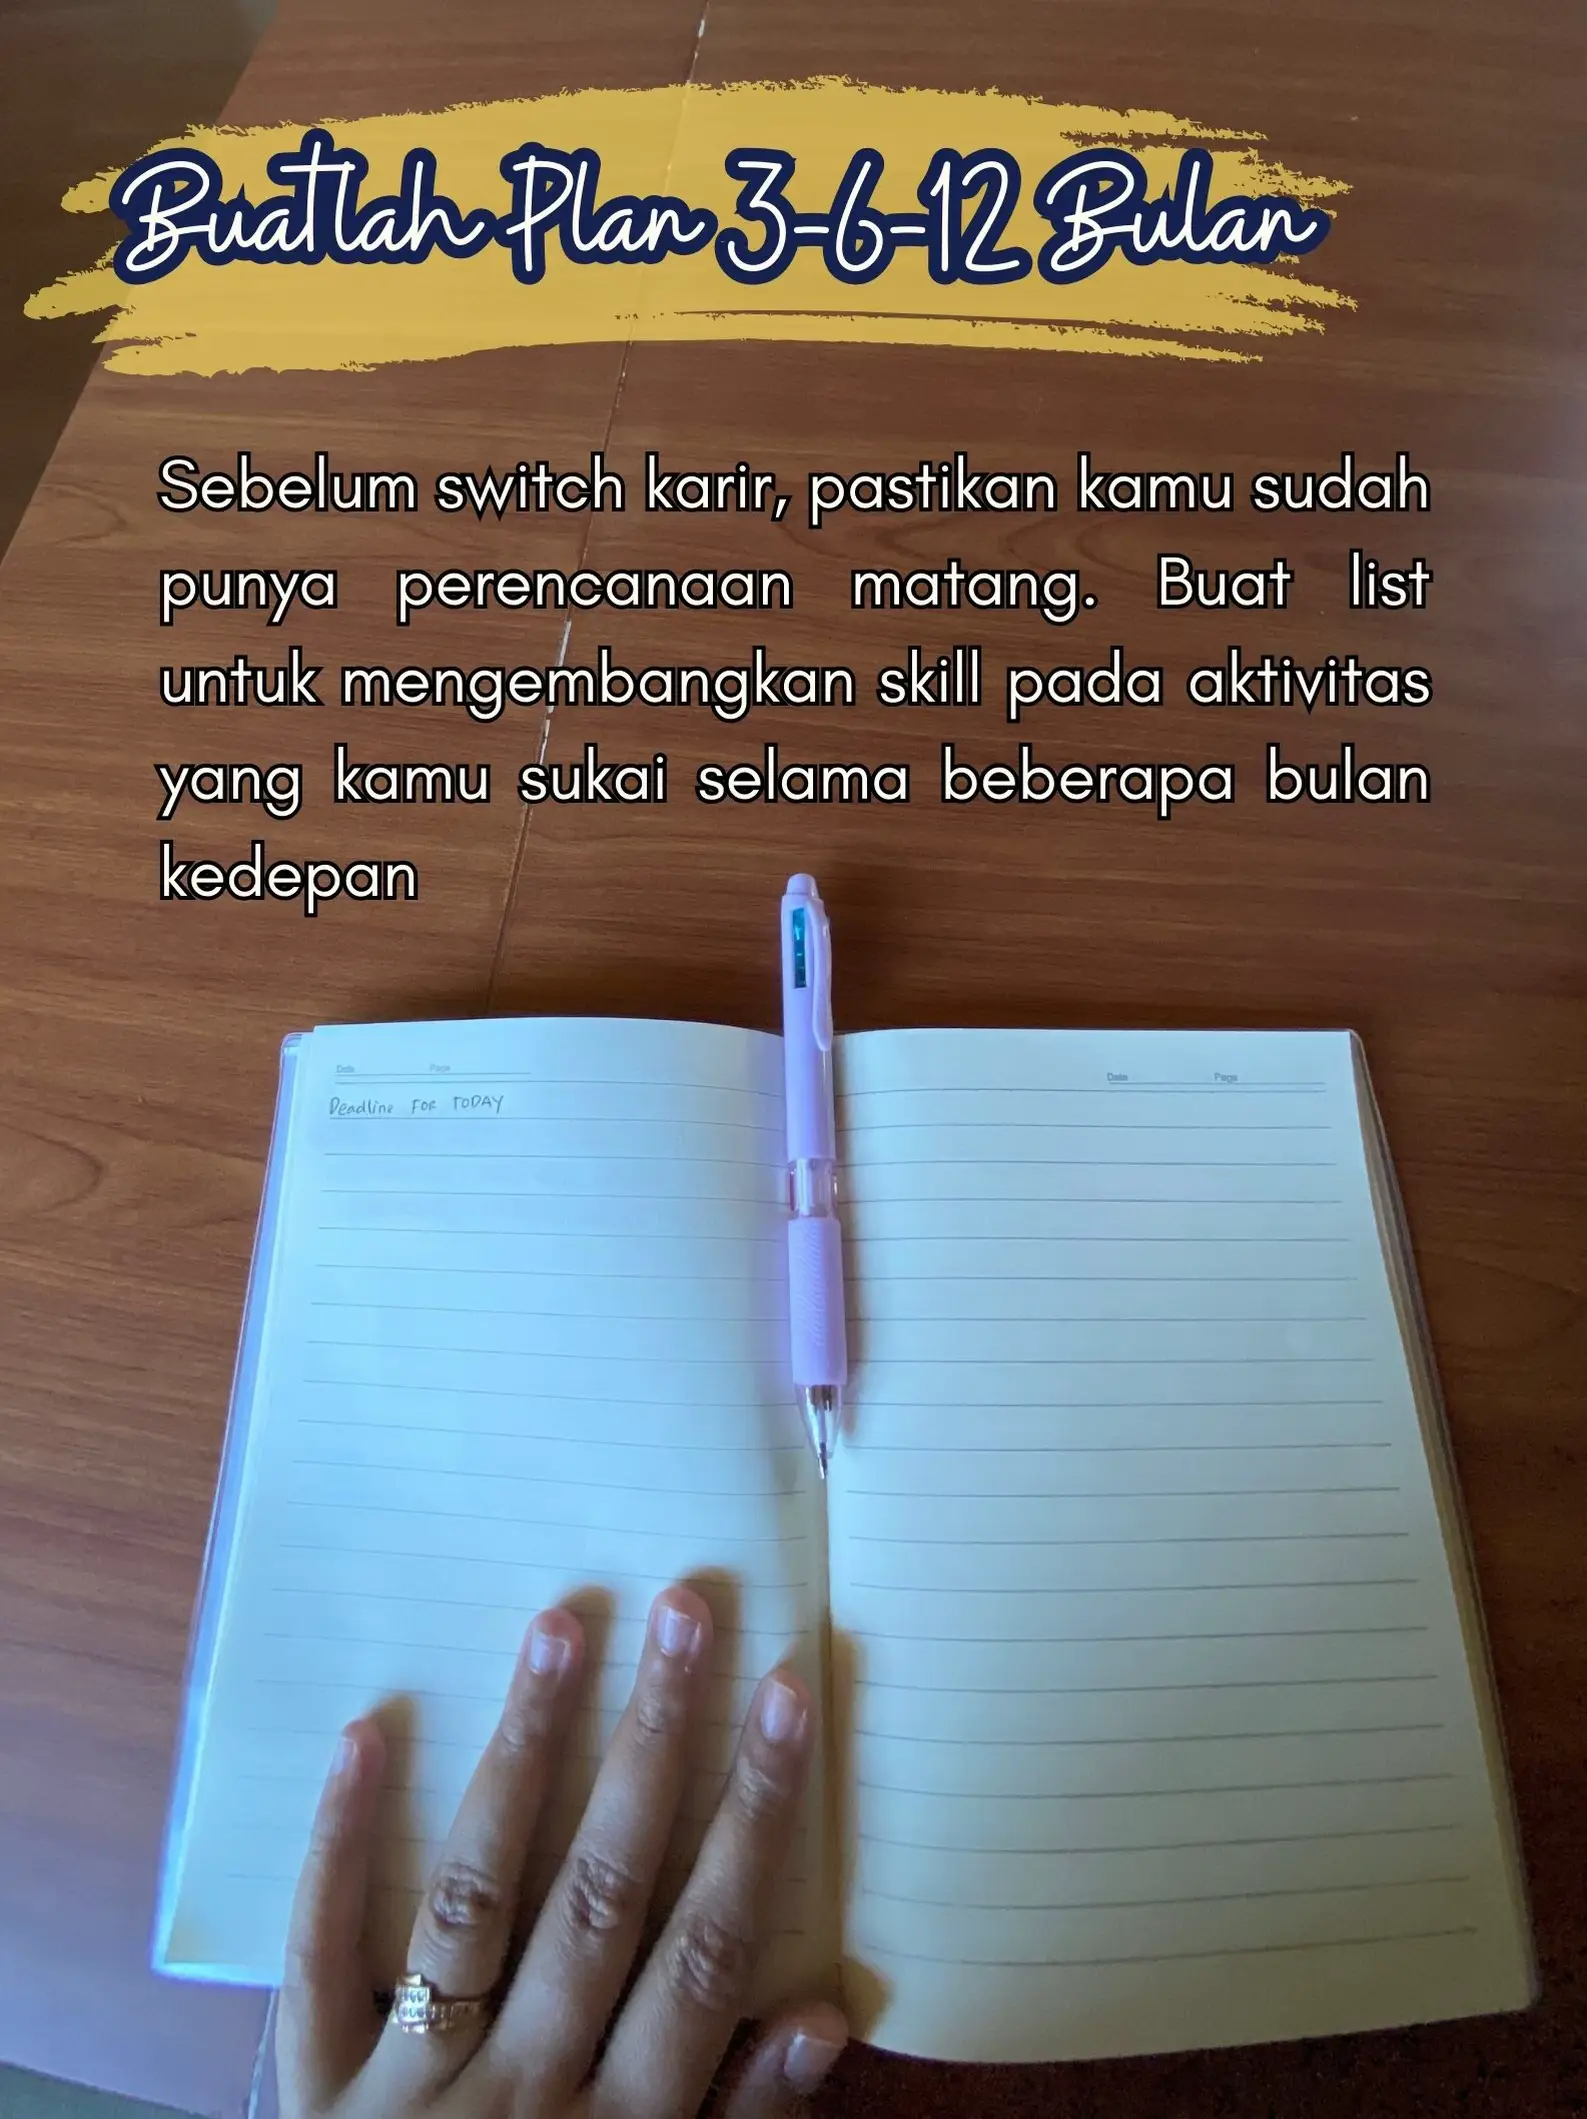 Buatlah Plan 3-6-12 Bulan
Sebelum switch karir, pastikan kamu sudah
punya perencanaan matang. Buat list
untuk mengembangkan skill pada aktivitas
yang kamu sukai selama beberapa bulan
kedepan
Date Page
Date Page
Deadline FOR TODAY